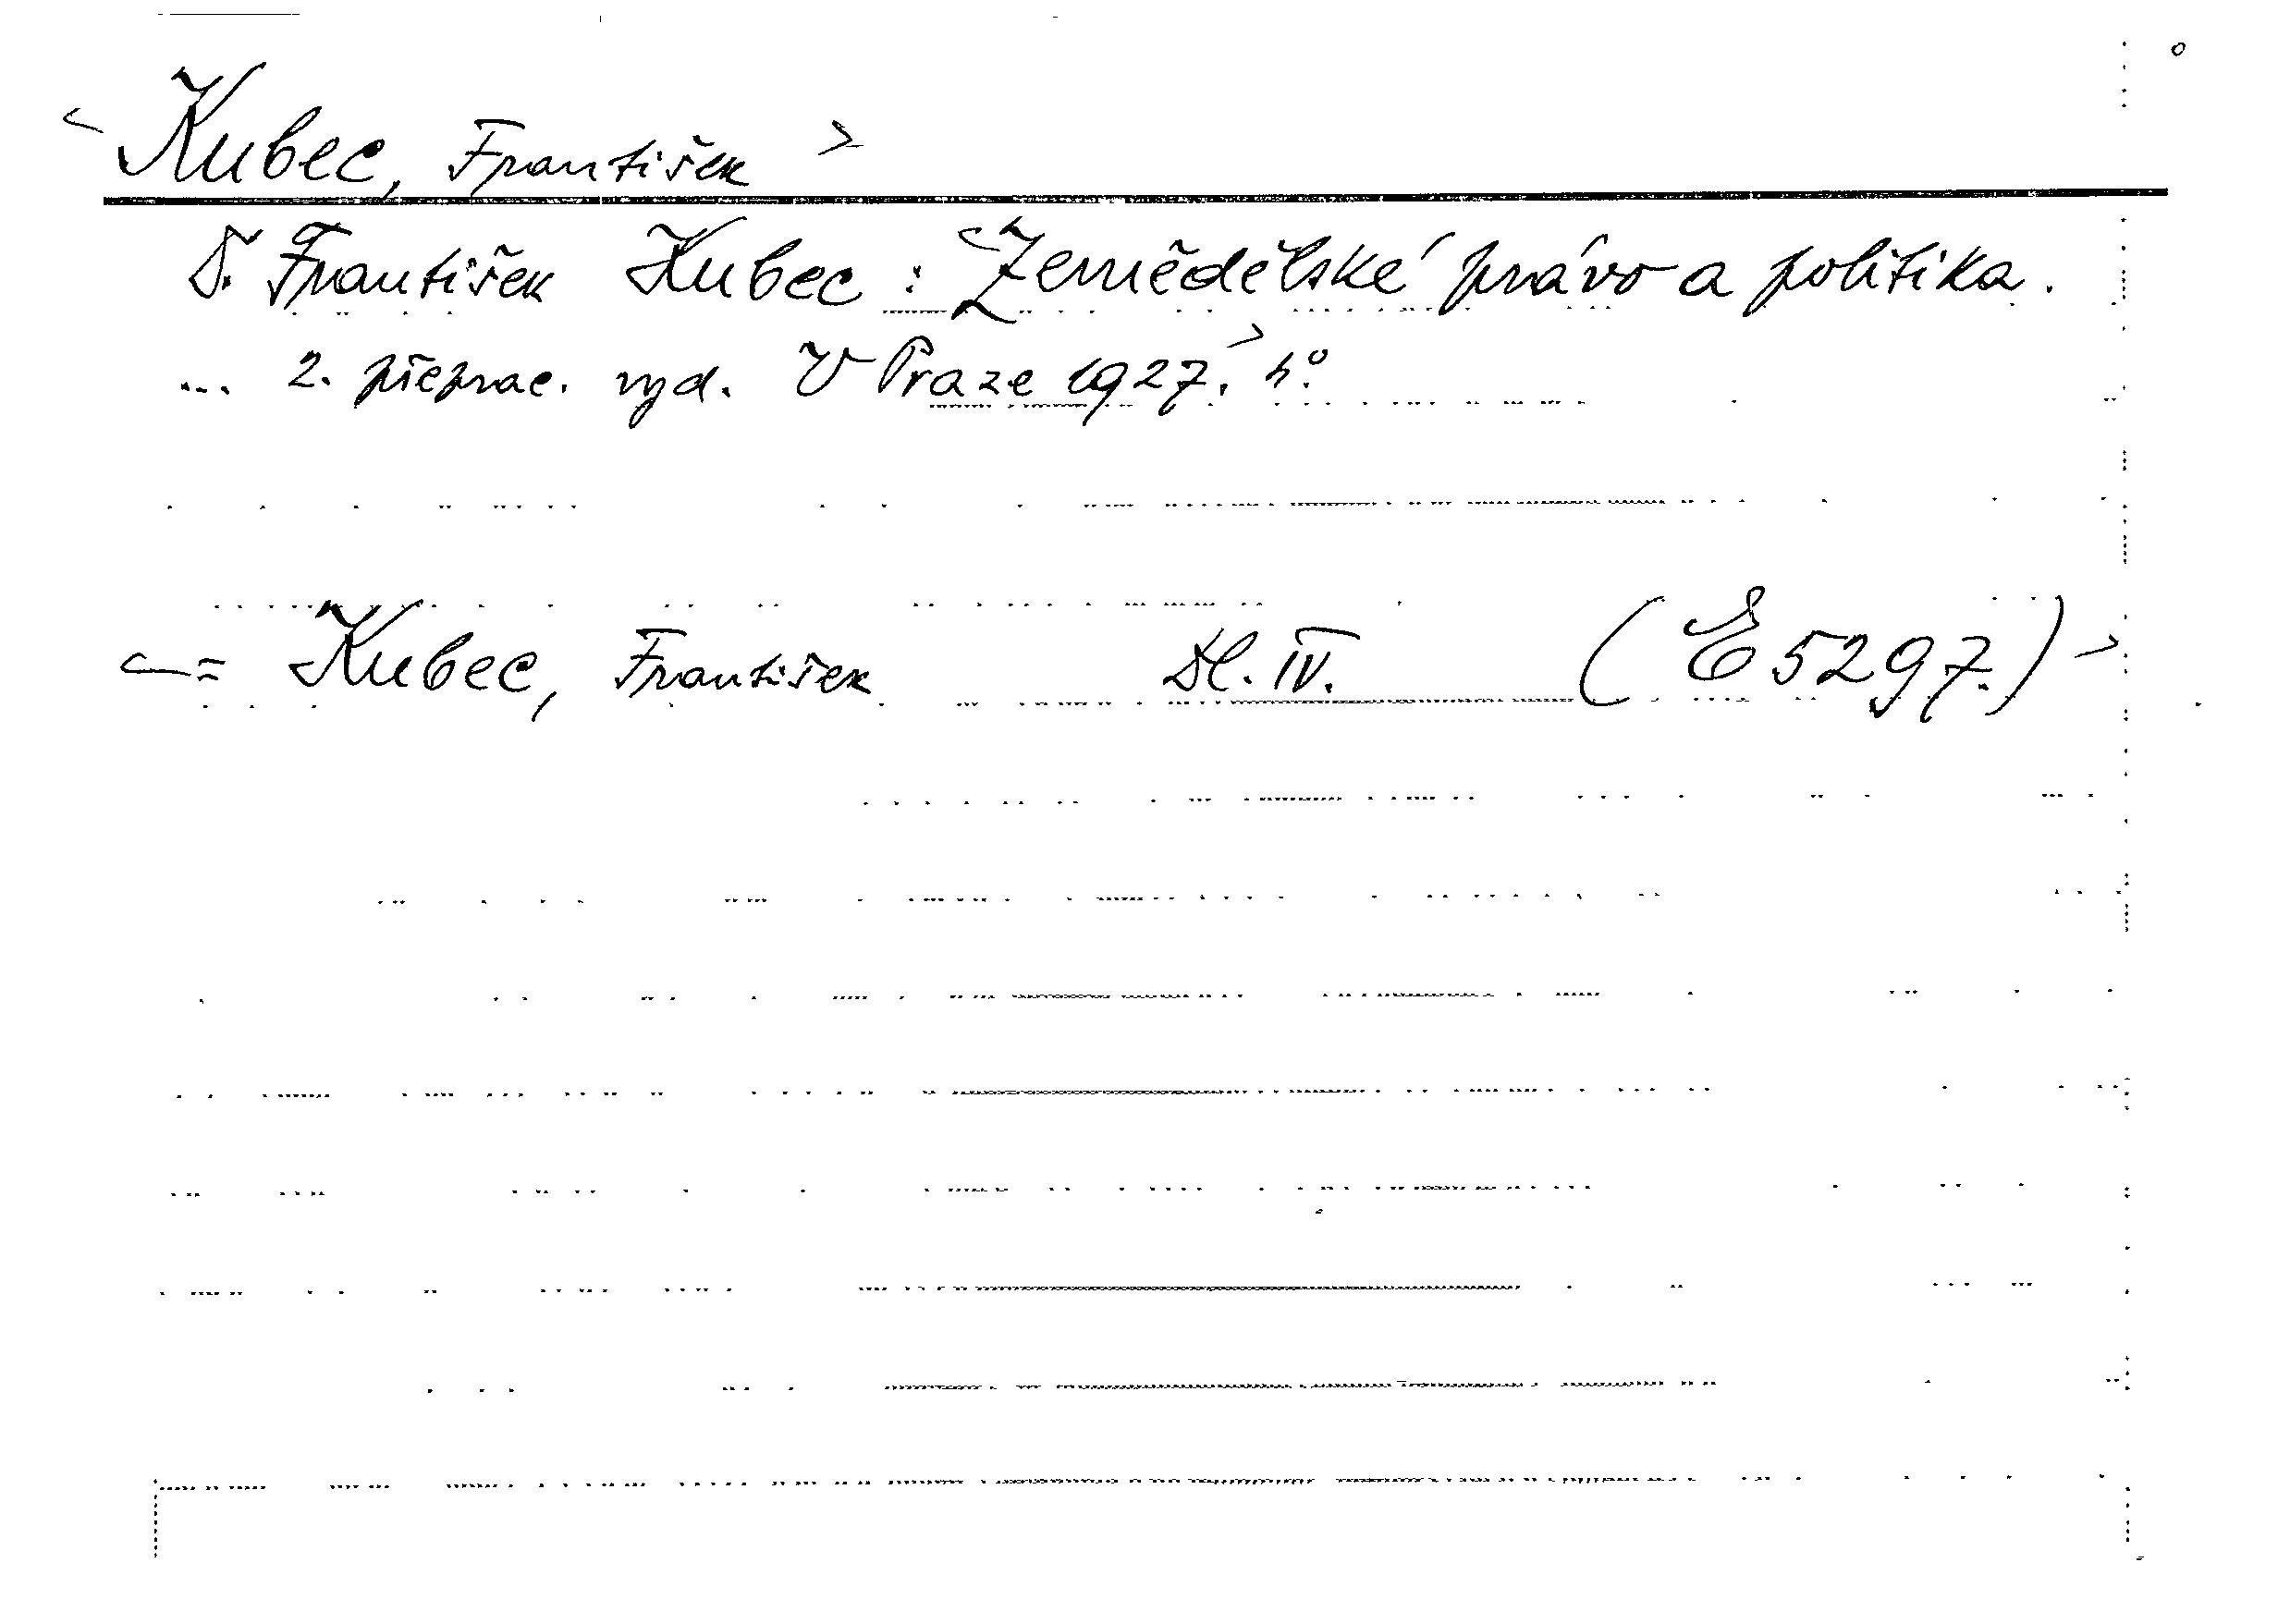 <Kubec, František>
F. František Kubec : <Zemědělské právo a politika.
... 2. přeprac. vyd. V Praze 1927.> 4°.
<= Kubec, František Dl. IV. (E 5297.)>